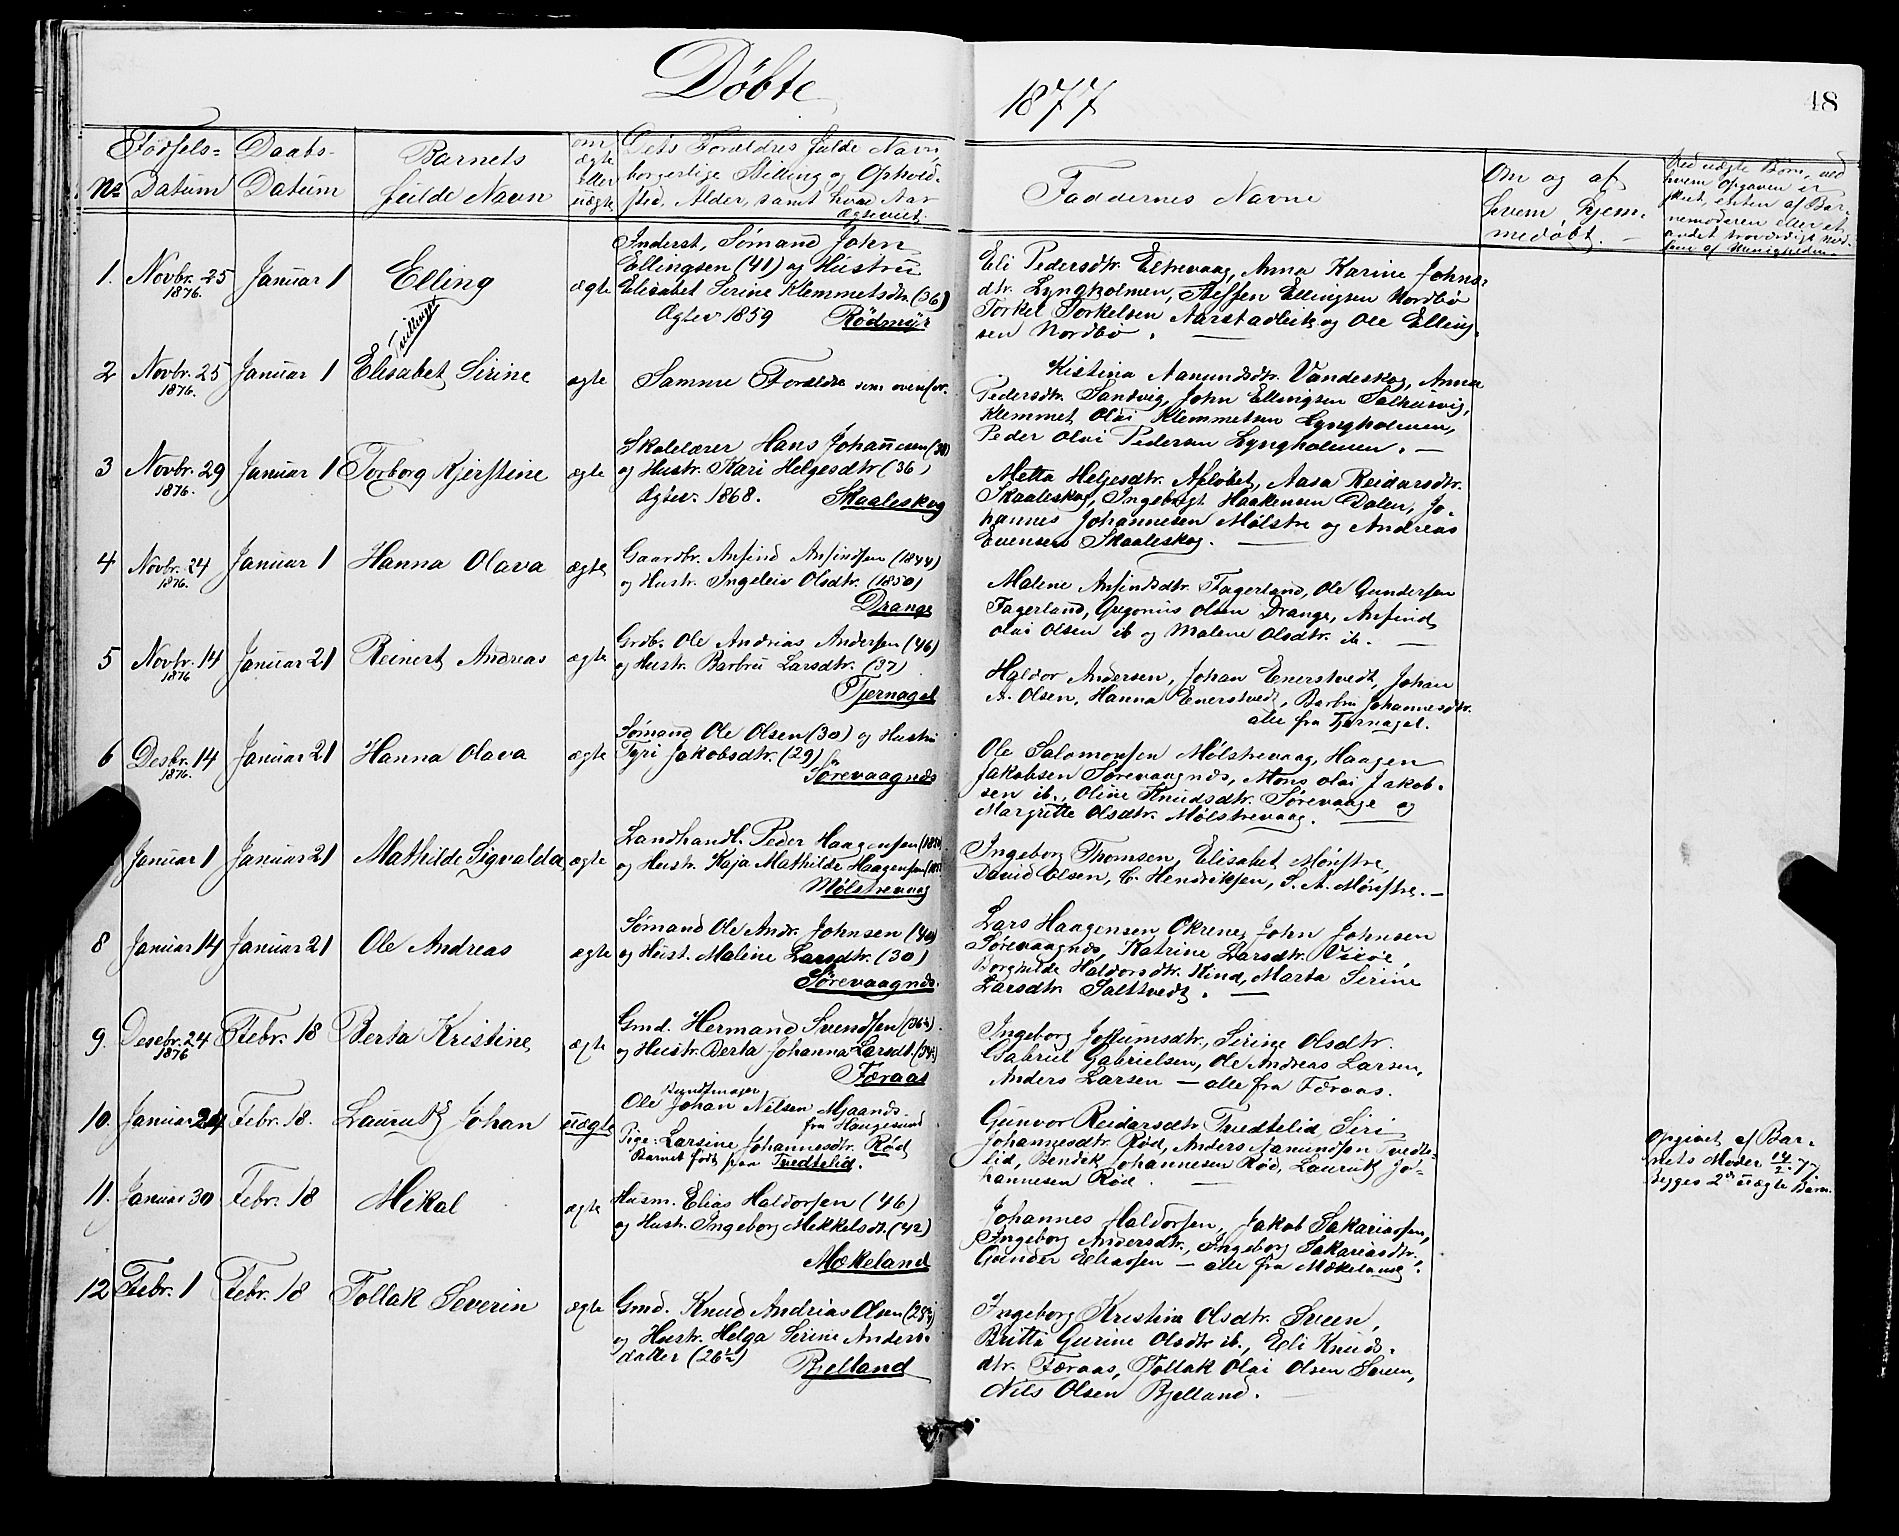 Döbte
1877
48
No
Födsels-
Datum
Daabs-
Datum
Barnets
fulde Navn
om
ægte
eller
uægte
Dets Forældres fulde Navn,
borgerlige Stilling og Ophold-
sted, Alder, samt hvad Aar
Ægteviet.
Faddernes Navne
Om og af
hvem hjem-
medöbt.
Ved uægte Börn, ved
hvem Opgaven er
skeet, enten af Bar-
nemoderen eller et
andet troværdigt Med-
lem af Menigheden.
1. Novbr. 25 1876. Januar 1 Elling ægte
Tvillinger
Inderst, Sömand John
Ellingsen (41) og Hustru
Elisabet Serine Klemmetsdtr. (36)
Ægtev. 1859 Rödmyr
Eli Pedersdtr. Eltrevaag, Anna Karine Johns-
dtr. Lyngholmen, Steffen Ellingsen Nordbö
Torkel Torkelsen Aarstadlien og Ole Elling-
sen Nordbö.
2 Novbr. 25 1876. Januar 1 Elisabet Sirine ægte
Samme Forældre som ovenfor.
Kistina Aamundsdtr. Vandeskog, Anna
Pedersdtr. Sandvig, John Ellingsen Salhusvig,
Klemmet Olai Klemmetsen Lyngholmen,
Peder Olai Pedersen Lyngholmen.
3 Novbr. 29 1876. Januar 1 Torborg Kjerstine ægte
Skolelærer Hans Johannesen (38)
og Hustr. Kari Helgesdtr (36)
Ægtev. 1868. Skaaleskog
Metta Helgesdtr. Apelöbet, Aasa Reidarsdtr.
Skaaleskog, Ingebrigt Haakensen Dalen, Jo-
hannes Johannesen Mölstre og Andreas
Evensen Skaaleskog.
4 Novbr. 24 1876. Januar 1 Hanna Olava ægte
Gaardbr. Ansind Ansindsen (1844)
og Hustr. Ingeleiv Olsdtr. (1850)
Drange
Malene Ansindsdtr. Fagerland, Ole Gundersen
Fagerland, Gregorius Olsen Drange, Ansind
Olai Olsen ib og Malene Olsdtr. ib.
5 Novbr. 14 1876 Januar 21 Reinert Andreas ægte
Grdb. Ole Andrias Andersen (46)
og Hustr. Barbru Larsdtr. (37)
Tjernagel
Haldor Andersen, Johan Enerstvedt, Johan
A. Olsen, Hanna Enerstvedt, Barbru Johannesdtr.
alle fra Tjernagel.
6 Desbr. 14 1876. Januar 21 Hanna Olava ægte
Sömand Ole Olsen (30) og Hustru
Tyri Jakobsdtr. (29)
Sörevaagnæs
Ole Salomonsen Mölstrevaag, Haagen
Jakobsen Sörevaagnæs, Mons Olai Jakob-
sen ib., Oline Knudsdtr. Sörevaage og
Margritte Olsdtr. Mölstrevaag.
Januar 1 Januar 21 Mathilde Sigvalda ægte
Landhandl. Peder Haagensen
og Hustr. Kaja Mathilde Haagensen
Mölstrevaag
Ingeborg Thomsen, Elisabet Mönstre,
David Olsen, C. Hendriksen, S. A. Mönstre.
8 Januar 14 Januar 21 Ole Andreas ægte
Sömand Ole Andr. Johnsen (40)
og Hust. Malene Larsdtr. (30)
Sörevaagnæs.
Lars Haagensen Okrene, John Johnsen
Sörevaagnæs, Katrine Larsdtr.
Borghilde Haldorsdtr. Hind, Marta Serine
Larsdtr Saltvedt.
9. Desebr. 24 1876 Febr. 18 Berta Kristine ægte
Gmd. Hermand Svendsen (36½)
og Hustr. Berta Johanna Larsdt. (34)
Færaas
Ingeborg Jossumsdtr., Serine Olsdtr.
Gabriel Gabrielsen, Ole Andreas Larsen,
Anders Larsen — alle fra Færaas.
10. Januar 24 Febr. 18. Lauritz Johan uægte
Bundtmager
Ole Johan Nilsen Mjaands-
fra Haugesund
Pige: Larsine Johannesdtr. Röd
Barnet födt paa Tvedtelid.
Gunvor Reidarsdtr Tvedtelid, Siri
Johannesdtr. Röd, Anders Aamundsen Tvedte-
lid, Bendik Johannesen Röd, Lauritz Jo-
hannesen Röd.
Opgivet af Bar-
nets Moder 14/2 77.
Begges 2det uægte Barn.
11. Januar 30 Febr. 18 Mikal ægte
Husm. Elias Haldorsen (46)
og Hustr. Ingeborg Mikkelsdt. (42)
Mækeland
Johannes Haldorsen, Jakob Sakariassen,
Ingeborg Andersdtr., Ingeborg Sakariasdtr.,
Gunder Eliassen — alle fra Mækeland.
12 Febr. 1 Febr. 18 Tollak Severin ægte
Gmd. Knud Andrias Olsen
og Hustr. Helga Serine Anders-
datter (26½)
Bjelland
Ingeborg Kristina Olsdtr. Sveen,
Britta Gurine Olsdtr ib., Eli Knuds-
dtr. Færaas, Tollak Olai Olsen Sveen,
Nils Olsen Bjelland.